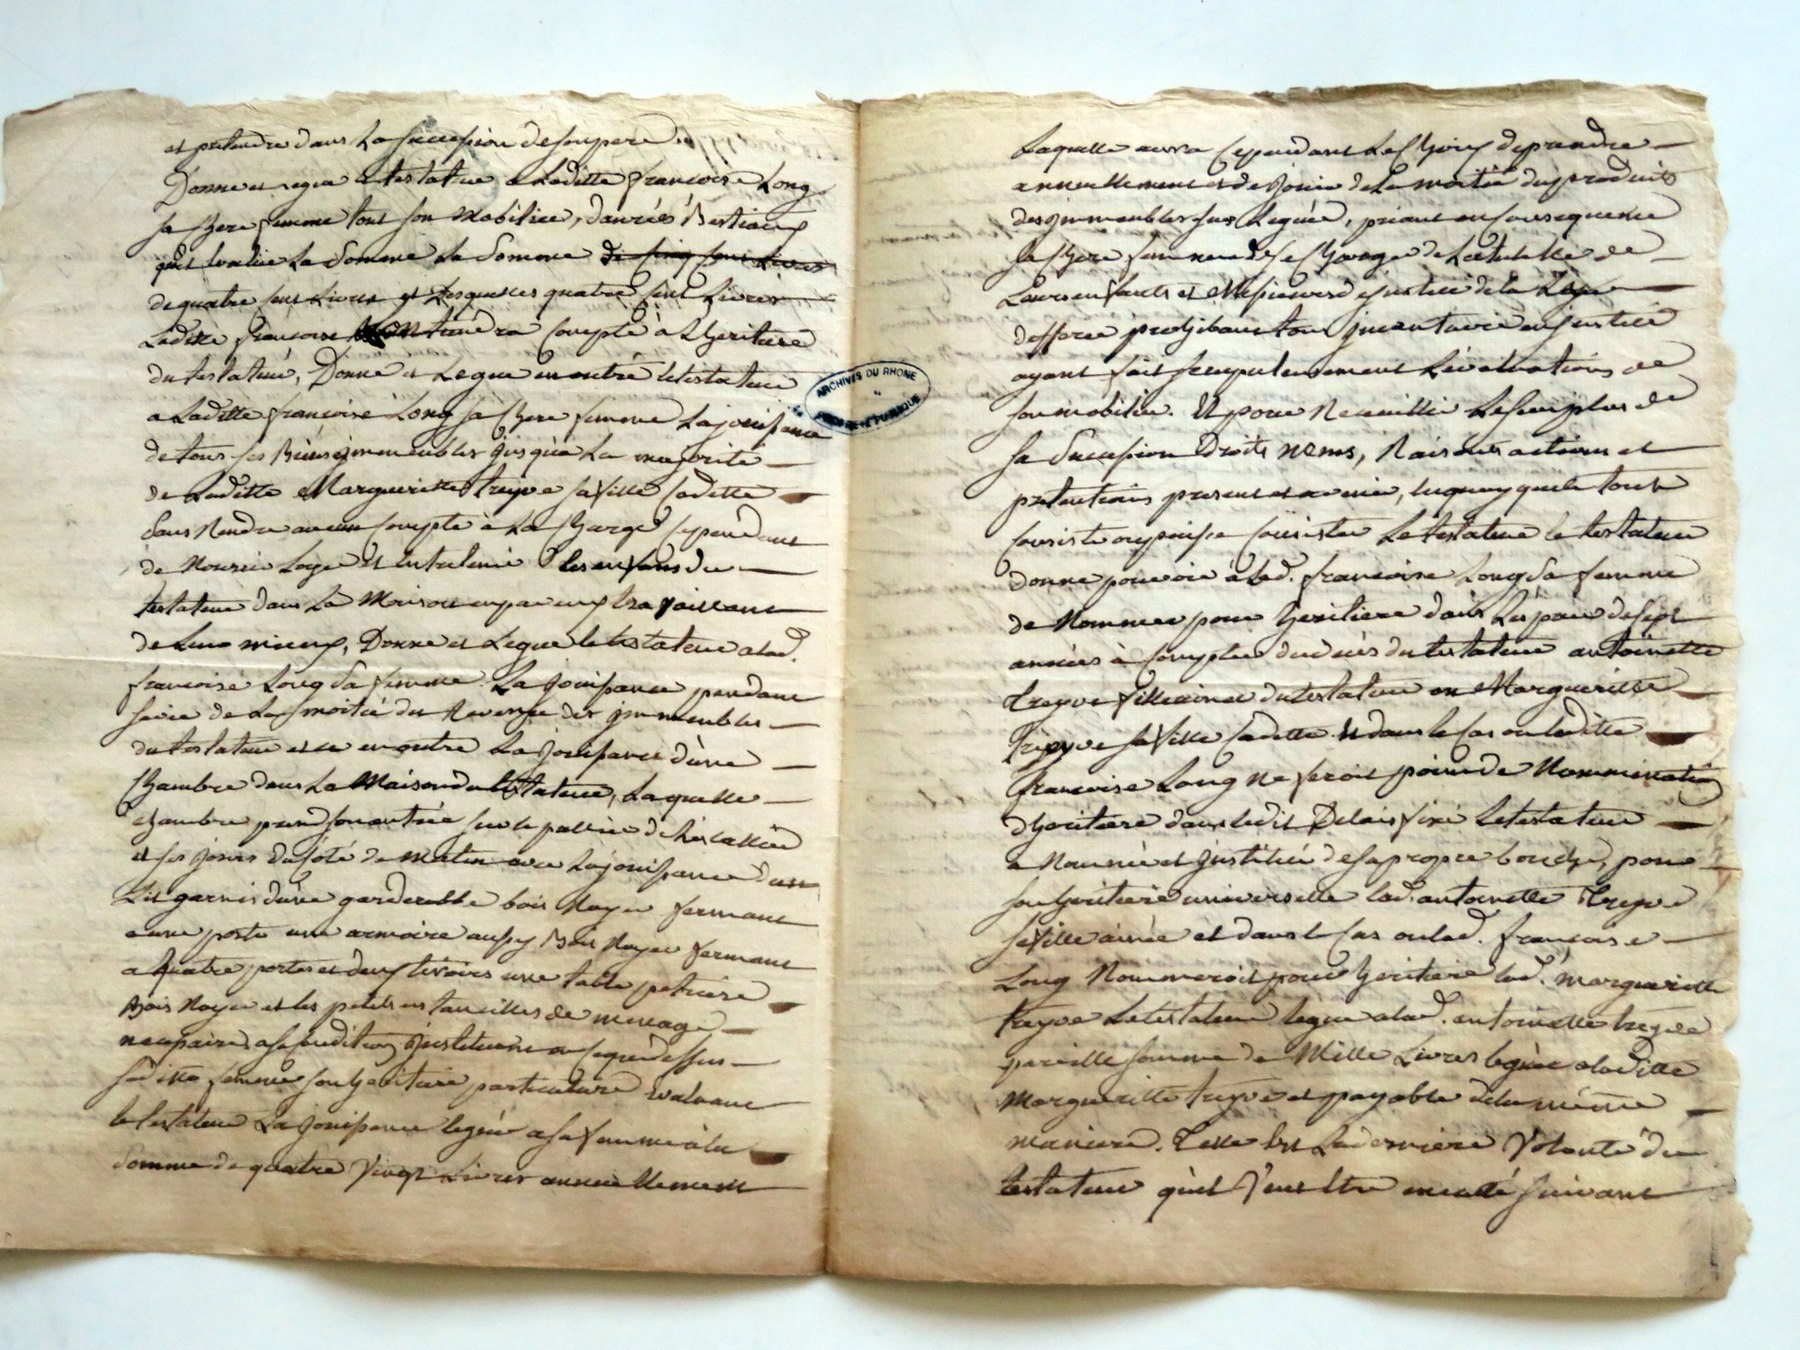 et prétendre dans La succession de son pere.
Donne et legue le testateur a Laditte francoise Long
sa chere femme tout son Mobilier, danrées Bestiaux
quil Evalue La Somme La Somme de Cinq Cent Livres
de quatre cent Livres et Desquelles quatre Cent Livres
Laditte francoise tiendra Compte à L'heritiere
du testateur, Donne et Legue en outre le testateur
a Laditte francoise Long sa chere femme La jouissance
de tous ses Biens immeubles jusqu'a La majorité
de Laditte Marguerittte treyve sa fille Cadette
Sans Rendre aucun Compte à La Charge Cependant
de Nourrir Loger et Entretenir les enfans du
testateur dans La Maison en par eux travaillant
de Leur mieux, Donne et Legue le testateur a lad.
francoise Long Sa femme La jouissance pendant
sa vie de La moitié du Revenu des immeubles
du testateur et en outre La jouissance d'une
Chambre dans La Maison du testateur, Laquelle
chambre prend son entrée sur le pallier de L'escallier
et ses jours du coté de matin avec La jouissance d'un
Lit garni d'une garderobbe bois Noyer fermant
a une porte une armoire aussy Bois Noyer fermant
a quatre portes et deux tiroirs une table petriere
Bois Noyer et les petits ustancilles de menage
necessaires a sa Condition instituant en ce que dessus
saditte femme son heritiere particuliere Evaluant
le testateur La jouissance leguée a sa femme à la
Somme de quatre Vingt Livres annuellement
Laquelle aura Cependant Le Choix de prendre
annuellement et de jouir de La moitié du produit
des immeubles sus Legués, priant en consequence
sa chere femme de se Charger de La tutelle de
Leurs enfants et Messieurs de justice de la Loy
d'office prohibant tout inventaire en justice
ayant fait scrupuleusement L'evaluation de
son mobilier. Et pour Recueillir Le surplus de
sa Succession Droits noms, Raisons actions et
prétentions present et avenir, en quoy que le tout
Consiste ou puisse Consister Le testateur le testateur
donne pouvoir a lad. francoise Long Sa femme
de Nommer pour heritiere dans L'espace de sept
années à Compter du deces du testateur antoinette
treyve fille ainée du testateur ou Margueritte
treyve sa fille Cadette. Et dans le Cas ou laditte
francoise Long ne feroit point de Nommination
d'heritiere dans ledit Delais fixé Le testateur
a Nommé et institué de sa propre bouche, pour
son heritiere universelle lad. antoinette Treyve
sa fille ainée et dans le Cas ou lad. francoise
Long Nommeroit pour heritiere lad. margueritte
treyve Le testateur legue a lad. antoinette treyve
pareille somme de Mille Livres leguée a laditte
Margueritte treyve et payable de la même
maniere. Telle Est La derniere Volonté du
testateur qu'il Veut Etre executé suivant
ARCHIVES DU RHONE